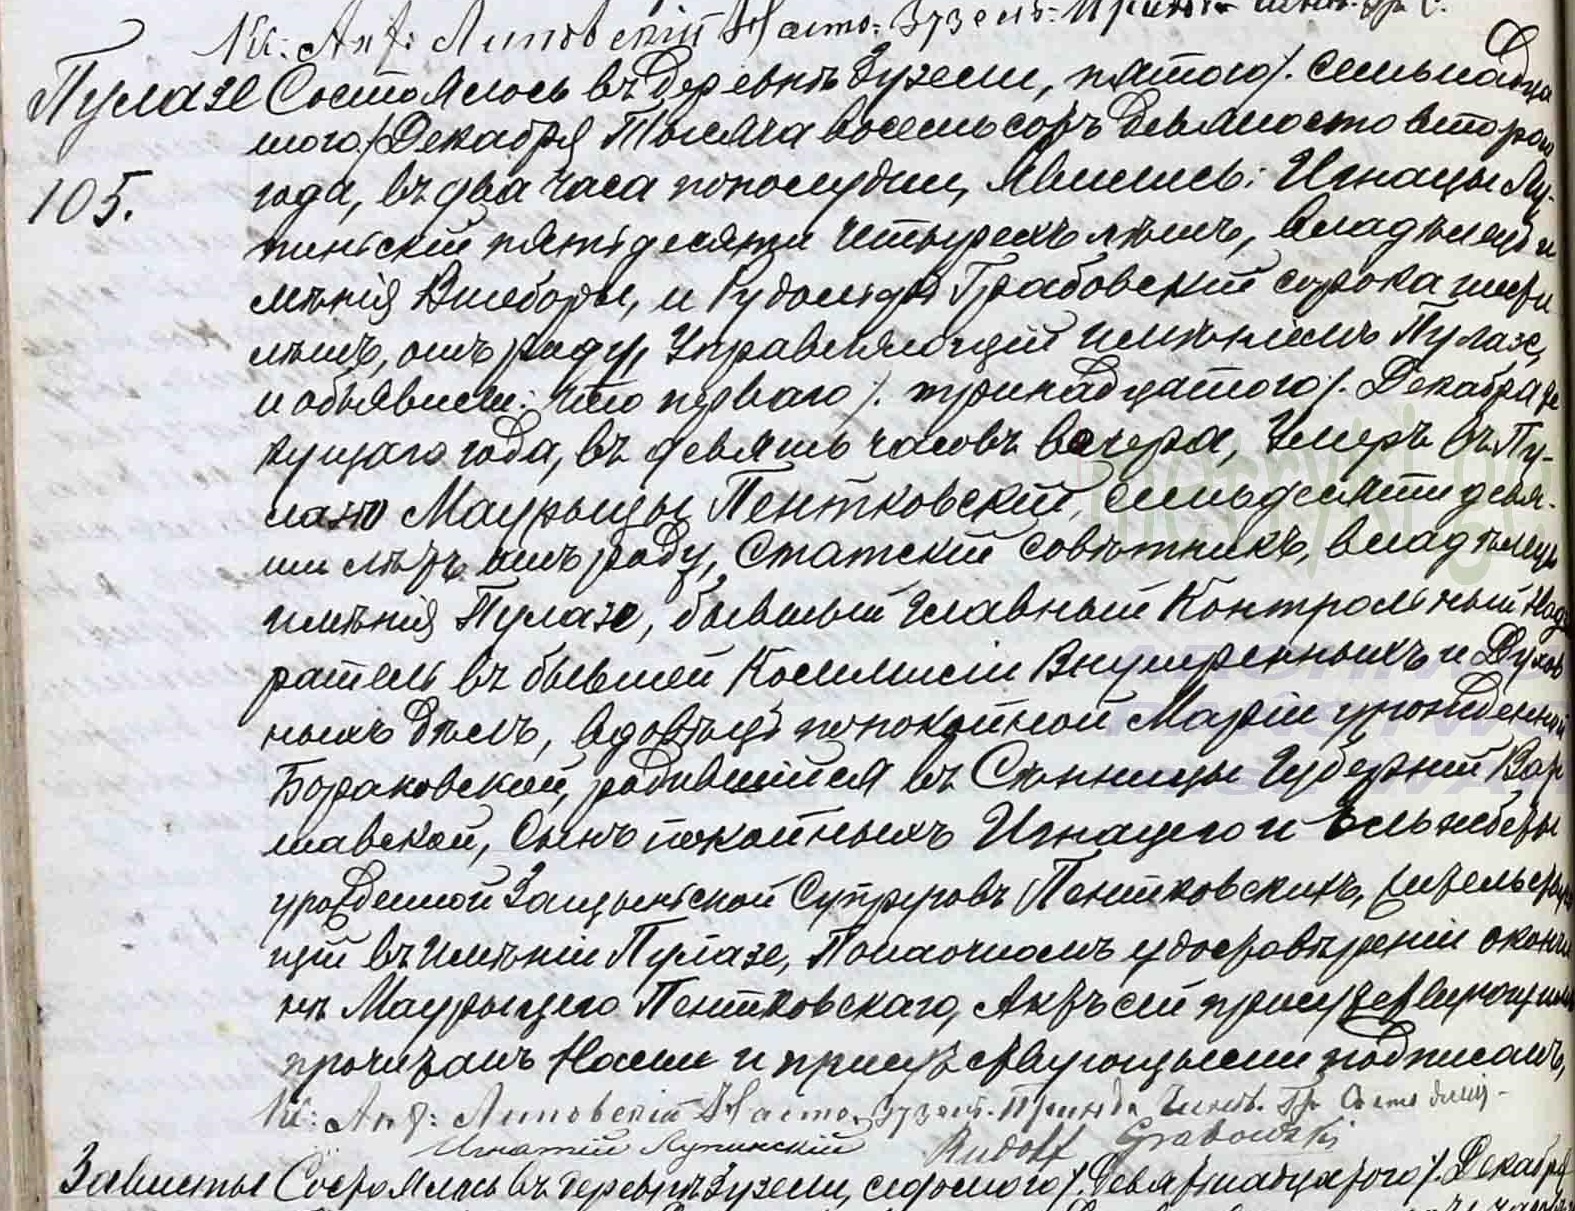 Кс: Ант: Липовскій Насто. Зузель.
Пулазе Состоялось въ деревнѣ Зузели, пятого /. семьнадца
105.
таго /. Декабря Тысяча восемьсотъ девяносто второго
года, въ два часа пополудни, явились: Игнацы Лу-
пинскій пятидесяти четырехъ лѣтъ, владѣлецъ и
мѣнія Вшеборы, и Рудольфъ Грабовскій сорока
лѣтъ, отъ роду, Управляющій имѣніемъ Пулазе,
и объявили: что перваго /. тринадцатого /. Декабря те
кущаго года, въ девять часовъ вечера, умеръ въ Пу-
лазю Маурыцы Пентковскій, семьдесяти девя-
ти лѣтъ отъ роду, Статскій совѣтникъ, владѣлецъ
имѣнія Пулазе, бывшый Главный Контрольный Надз
ратель въ бывшей Коммисіи Внутренныхъ и Духов
ныхъ Дѣлъ, вдовецъ по покойной Маріи урожденной
Бораковской, родившійся въ Сѣнницы Губерніи Вар
шавской, Сынъ покойныхъ Игнацего и Ельжбеты
урожденной Супруговъ Пентковскихъ, жительствую
щій въ имѣніи Пулазе, По наочномъ удостовѣреніи о кончи
нѣ Маурыцего Пентковскаго, Актъ сей присутствующимъ
прочитанъ Нами и присутствующыми подписанъ,
Кс: Ант: Липовскій Насто. Зузель. Прихода Чинов. Гр. Состоянія.
Игнатій Лупинскій Rudolf Grabowski
Зависты Состоялось въ деревнѣ Зузели, седьмого /. девятнадцатого /. Декабря